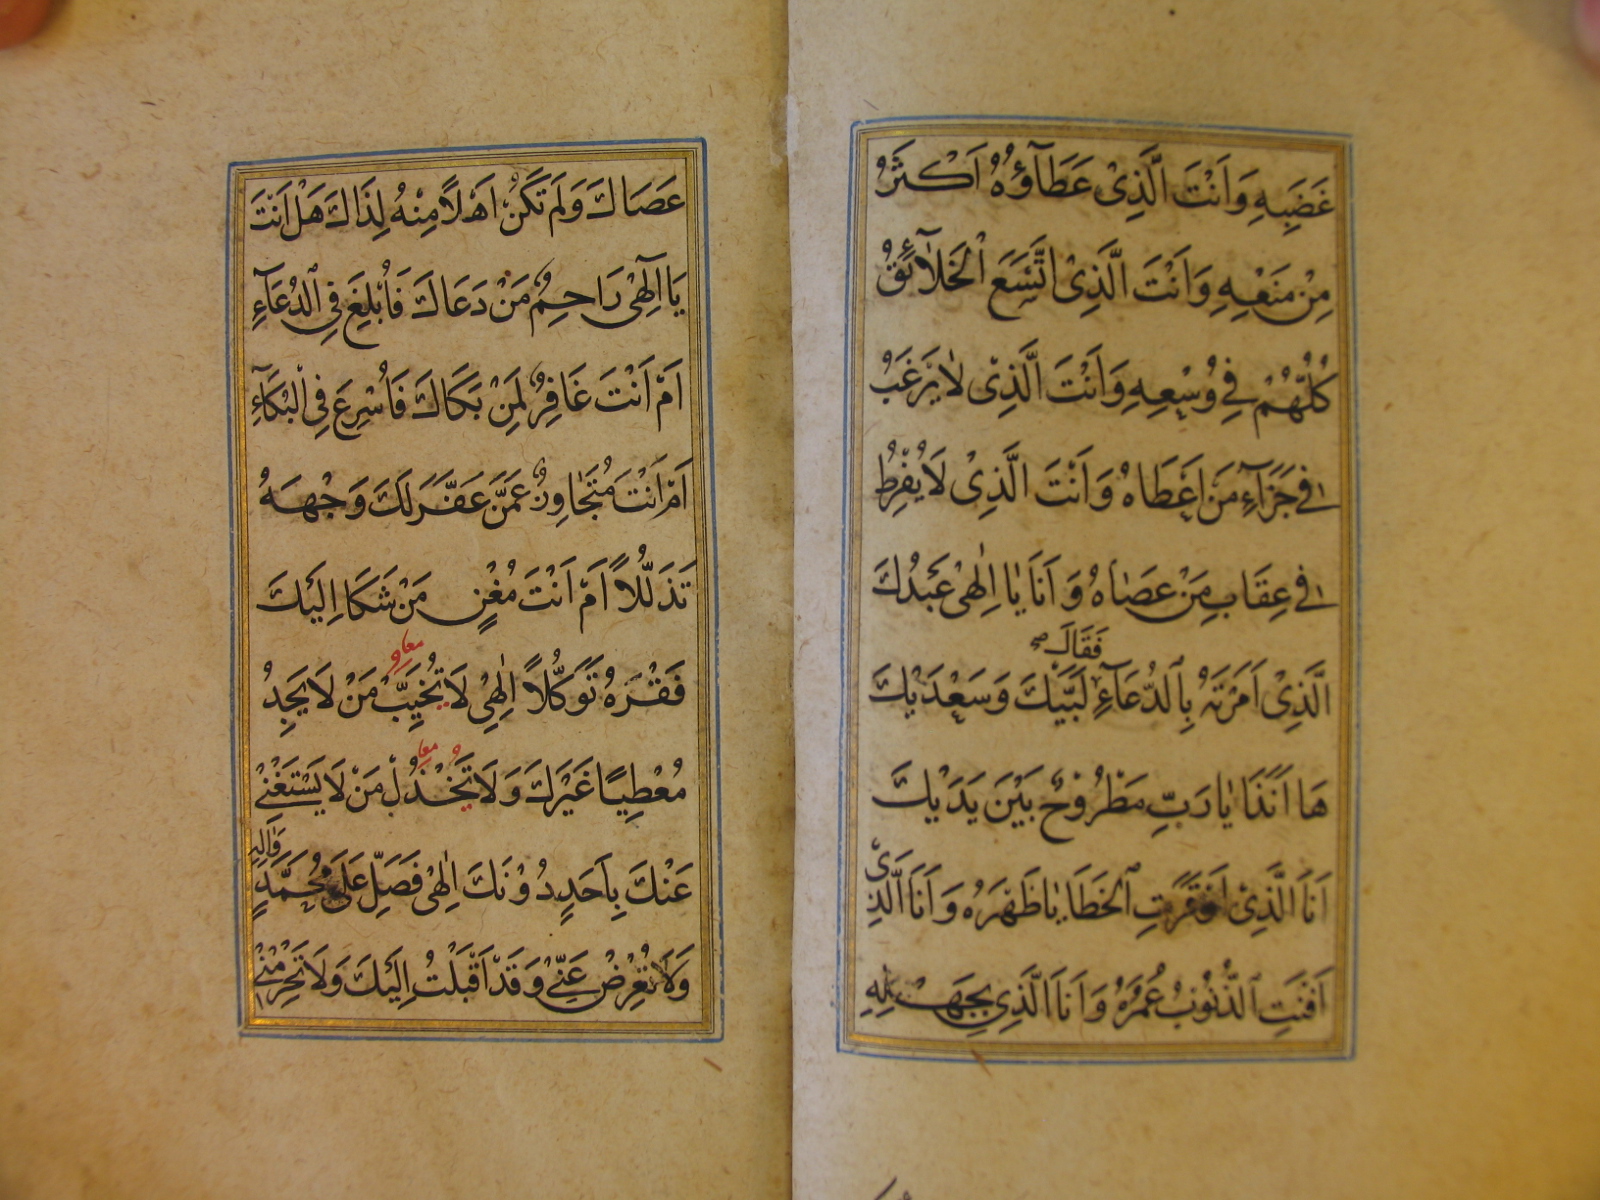 غَضَبِهِ وَاَنْتَ الَّذِىْ عَطَآؤُهُ اَكْثَرُ
مِنْ مَنْعِهِ وَاَنْتَ الَّذِىْ اتَّسَعَ الْخَلَآئِقُ
كُلُّهُمْ فِي وُسْعِهِ وَاَنْتَ الَّذِىْ لَا يَرْغَبُ
فِي جَزَآءِ مَنْ اَعْطَاهُ وَاَنْتَ الَّذِىْ لَا يُفْرِطُ
فِي عِقَابِ مَنْ عَصَاهُ وَ اَنَا يَا اِلٰهِىْ عَبْدُكَ
فَقَالَ
الَّذِىْ اَمَرْتَهُ بِالدُّعَآءِ لَبَّيْكَ وَ سَعْدَيْكَ
هَا اَنَذَا يَا رَبِّ مَطْرُوْحٌ بَيْنَ يَدَيْكَ
اَنَا الَّذِىْ اَوْقَرَتِ الْخَطَايَا ظَهْرَهُ وَ اَنَا الَّذِىْ
اَفْنَتِ الذُّنُوْبُ عُمُرَهُ وَ اَنَا الَّذِي بِجَهْلِهِ
عَصَاكَ وَلَمْ تَكُنْ اَهْلًا مِنْهُ لِذَاكَ هَلْ اَنْتَ
يَا اِلٰهِىْ رَاحِمٌ مَنْ دَعَاكَ فَاُبْلِغَ فِي الدُّعَآءِ
اَمْ اَنْتَ غَافِرٌ لِمَنْ بَكَاكَ فَاُسْرِعَ فِي الْبُكَآءِ
اَمْ اَنْتَ مُتَجَاوِزٌ عَمَّنْ عَفَّرَ لَكَ وَجْهَهُ
تَذَلُّلًا اَمْ اَنْتَ مُغْنٍ مَنْ شَكَا اِلَيْكَ
معا
فَقْرَهُ تَوَكُّلًا اِلٰهِىْ لَا تُخَيِّبْ مَنْ لَا يَجِدُ
معا
مُعْطِيًا غَيْرَكَ وَ لَا تَخْذُلْ مَنْ لَا يَسْتَغْنِىْ
عَنْكَ بِاَحَدٍ دُوْنَكَ اِلٰهِىْ فَصَلِّ عَلٰى مُحَمَّدٍ وَاٰلِهِ
وَلَا تُعْرِضْ عَنِّىْ وَ قَدْ اَقْبَلْتُ اِلَيْكَ وَ لَا تَحْرِمْنِىْ